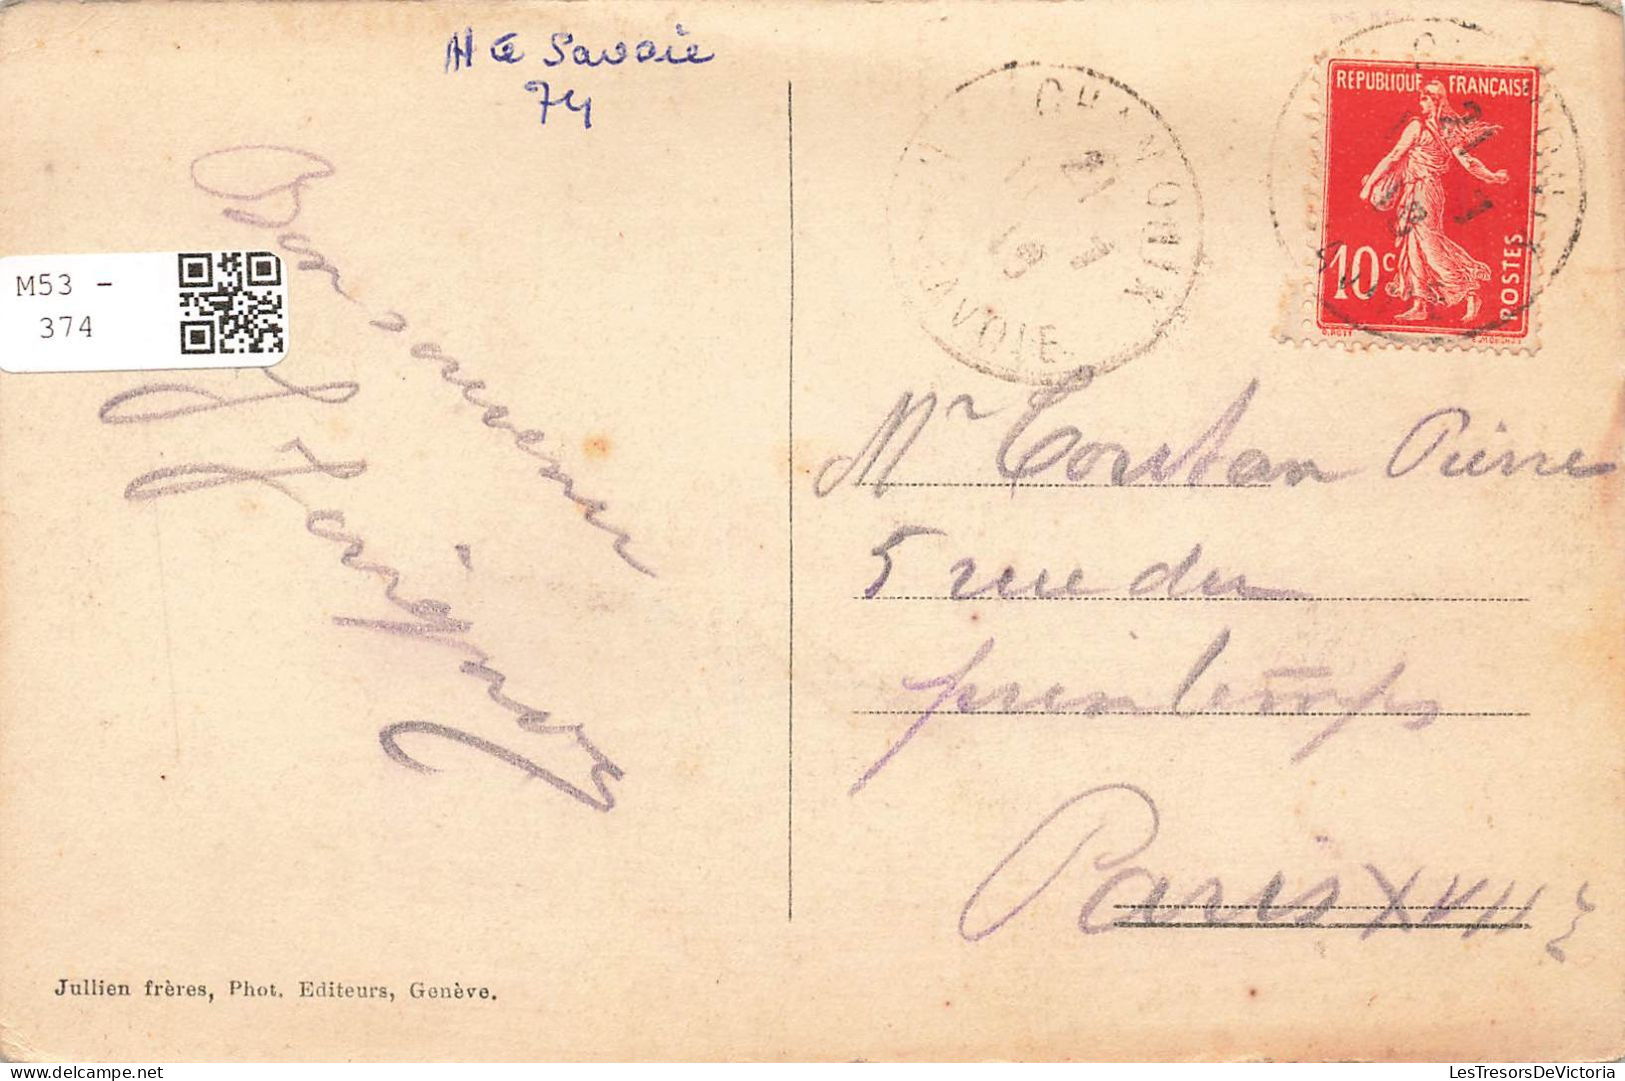 Hte Savoie
74
M53 -
374
Bon souvenir
CHAMONIX
21
7
13
SAVOIE
RÉPUBLIQUE FRANÇAISE
10c
POSTES
Mr Constan Pierre
5 rue du
printemps
Paris XVII e
Jullien frères, Phot. Editeurs, Genève.
LesTresorsDeVictoria